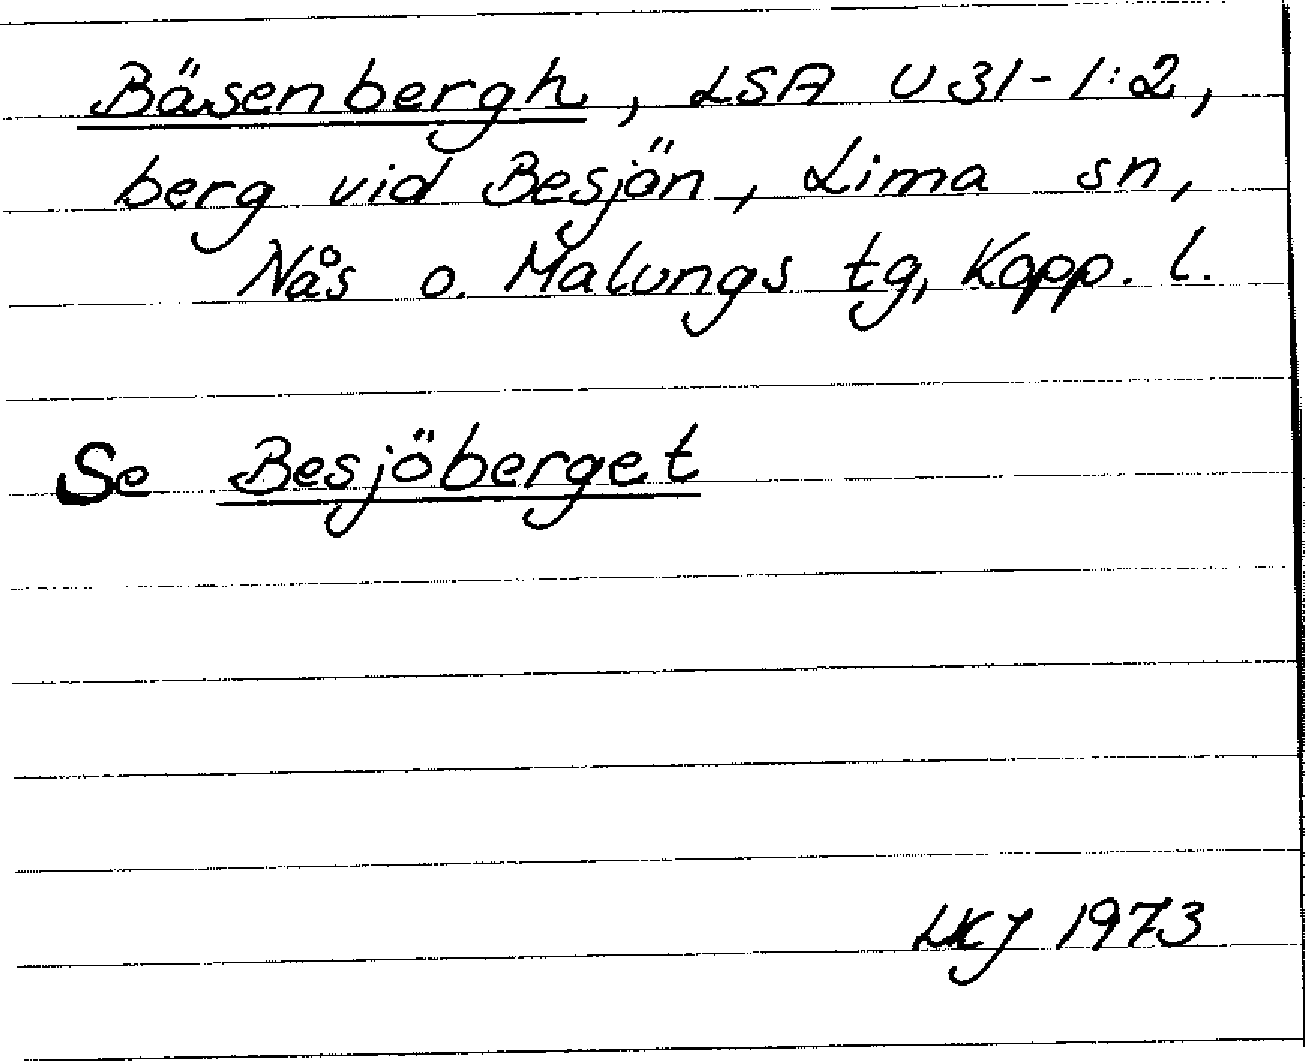 Bäsenbergh, LSA U31-1:2,
berg vid Besjön, Lima sn,
Nås o. Malungs tg, Kopp. l.
Se Besjöberget
LKJ 1973